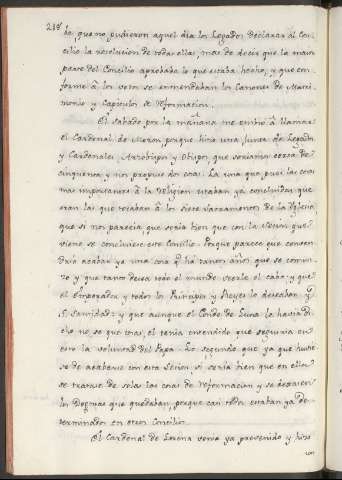 218
de, que no pudieron aquel dia los Legados declarar al Con-
cilio la resolucion de todas ellas, mas de decir que la maior
parte del Concilio aprobaba lo que estaba hecho, y que con-
forme à los votos se enmendaban los Canones de Matri-
monio y Capitulos de Reformacion.
El sabado por la mañana me embió à llamar
el Cardenal de Moron, porque hizo una Junta de Legados
y Cardenales, Arzobispos y Obispos que seriamos cerca de
cinquenta y nos propuso dos cosas. La una que, pues las cosas
mas importantes à la Religion estaban ya concluidas que
eran las que tocaban à los siete Sacramentos de la Iglesia
que si nos parecia que seria bien que con la Sesion que
viene se concluiese este Concilio. Porque parece que conven-
dria acabar ya una cosa que ha tantos años que se comen-
zo y que tanto desea todo el mundo verle el cabo, y que
el Emperador, y todos los Principes y Reyes lo deseaban y
S. Santidad; y que aunque el Conde de Luna le havia di-
cho no se que cosas, el tenia entendido que seguiria en
esto la voluntad del Papa. Lo segundo que ya que huvie-
se de acabarse con esta Sesion si seria bien que en ella
se tratase de solas las cosas de reformacion y se dexasen
los Dogmas que quedaban, porque casi todos estaban ya de-
terminados en otros Concilios.
El Cardenal de Lorena venia ya prevenido y hizo